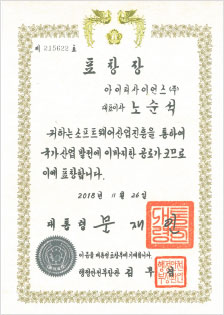 제 215622 호
표창장
아이퀘사이언스(주)
대표이사 노순석
귀하는 소프트웨어산업진흥을 통하여
국가 산업 발전에 이바지한 공로가 크므로
이에 표창합니다
2018년 11월 26일
대통령 문재인
이 증을 대통령표창부에 기재합니다.
행정안전부장관 김부겸